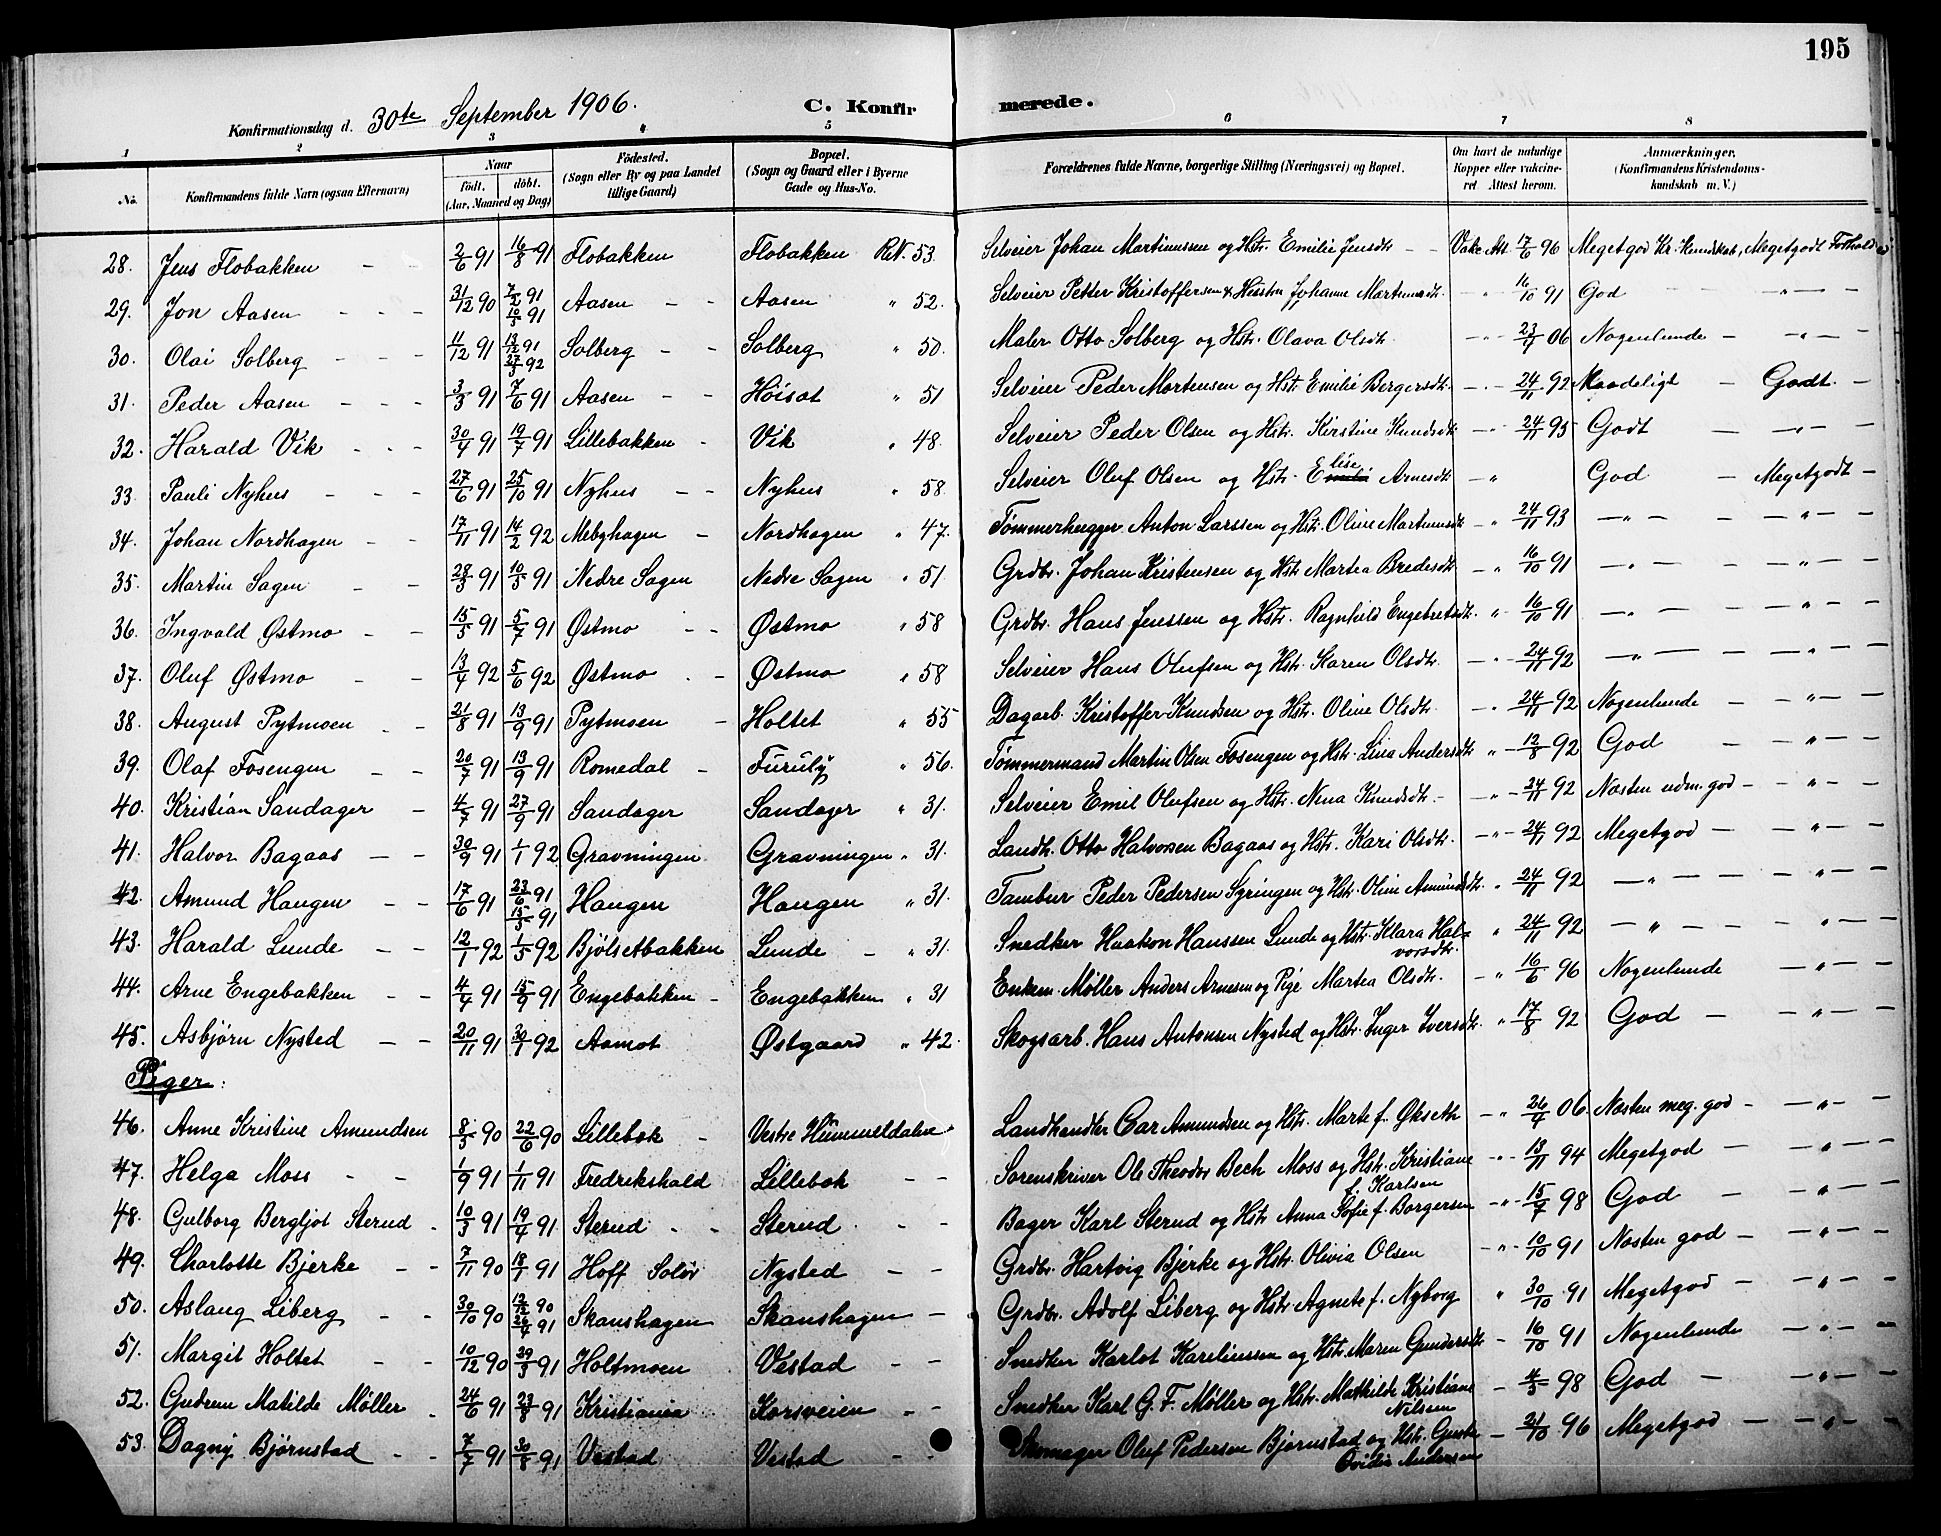 195
Konfirmationsdag d. 30te September 1906. C. Konfirmerede.
1 2 3 4 5 6 7 8
No. Konfirmandens fulde Navn (ogsaa Efternavn) Naar födt. döbt. (Aar, Maaned og Dag) Födested. (Sogn eller By og paa Landet tillige Gaard) Bopæl. (Sogn og Gaard eller i Byerne Gade og Hus-No. Forældrenes fulde Navne, borgerlige Stilling (Næringsvei) og Bopæl. Om havt de naturlige Kopper eller vakcineret Attest herom. Anmærkninger. (Konfirmandens Kristendomskundskab m. V.)
28. Jens Flobakken 2/6 91 16/8 91 Flobakken Flobakken RN. 53. Selveier Johan Martinussen og Hstr. Emilie Jensdtr. Vakc. Att. 17/6 96 Megetgod Kr. Kundskab, Megetgodt Forhold
29. Jon Aasen 31/12 90 7/2 91 10/5 91 Aasen Aasen " 52. Selveier Petter Kristoffersen & Hustru Johanne Martinusdtr. " 16/10 91 God "
30. Olai Solberg 11/12 91 13/12 91 27/3 92 Solberg Solberg " 50. Maler Otto Solberg og Hstr. Olava Olsdtr. " 23/7 06 Nogenlunde "
31. Peder Aasen 3/3 91 7/6 91 Aasen Höisat " 51 Selveier Peder Mortensen og Hstr. Emilie Bergersdtr. " 24/11 92 Maadeligt Godt
32. Harald Vik 30/4 91 19/7 91 Lillebakken Vik " 48. Selveier Peder Olsen og Hstr. Kirstine Knudsdtr. " 24/11 95 Godt "
33. Pauli Nyhus 27/6 91 25/10 91 Nyhus Nyhus " 58. Selveier Oluf Olsen og Hstr. Elise Arnesdtr. " God Megetgodt
34. Johan Nordhagen 17/11 91 14/2 92 Mebyhagen Nordhagen " 47. Tømmerhugger Anton Larssen og Hstr. Oline Martinusdtr. " 24/11 93 " "
35. Martin Sagen 28/3 91 10/5 91 Nedre Sagen Nedre Sagen " 51 Grdbr. Johan Kristensen og Hstr. Martea Bredesdtr. " 16/10 91 " "
36. Ingvald Østmo 15/5 91 5/7 91 Østmo Østmo " 58 Grdbr. Hans Jenssen og Hstr. Ragnhild Engebretsdtr. " 16/10 91 " "
37. Oluf Østmo 13/4 92 5/6 92 Østmo Østmo " 58 Selveier Hans Olufsen og Hstr. Karen Olsdtr. " 24/11 92 " "
38. August Pytmoen 21/8 91 13/9 91 Pytmoen Holtet " 55 Dagarb. Kristoffer Knudsen og Hstr. Oline Olsdtr. " 24/11 92 Nogenlunde "
39. Olaf Fosengen 20/7 91 13/9 91 Romedal Furuly " 56. Tømmermand Martin Olsen Fosengen og Hstr. Lina Andersdtr. " 12/8 92 God "
40. Kristian Sandager 4/7 91 27/9 91 Sandager Sandager " 31. Selveier Emil Olufsen og Hstr. Nina Knudsdtr. " 24/11 92 Næsten udm. god "
41. Halvor Bagaas 30/9 91 1/1 92 Gravningen Gravningen " 31. Landh. Otto Halvorsen Bagaas og Hstr. Kari Olsdtr. " 24/11 92 Megetgod "
42. Amund Haugen 17/6 91 23/6 91 15/5 91 Haugen Haugen " 31. Tambur Peder Pedersen Syringen og Hstr. Oline Amundsdtr. " 24/11 92 " "
43. Harald Lunde 12/1 92 1/5 92 Bjølsetbakken Lunde " 31. Snedker Haakon Hanssen Lunde og Hstr. Klara Halvorsdtr. " 24/11 92 " "
44. Arne Engebakken 4/4 91 15/9 91 Engebakken Engebakken " 31 Enkem. Møller Anders Arnesen og Pige Martea Olsdtr. " 16/6 96 Nogenlunde "
45. Asbjørn Nysted 20/11 91 30/1 92 Aamot Østgaard " 42. Skogsarb. Hans Antonsen Nysted og Hstr. Inger Iversdtr. " 17/8 92 God "
Piger:
46. Anne Kristine Amundsen 8/5 90 22/6 90 Lillebok Vestre Hummeldalen Landhandler Amundsen og Hstr. Marte f. Økseth " 26/4 06 Næsten meg. god "
47. Helga Moss 1/9 91 1/11 91 Fredrikshald Lillebok Sorenskriver Ole Theodor Bech Moss og Hstr. Kristiane f. Karlsen " 13/11 94 Megetgod "
48. Gulborg Bergljot Sterud 10/3 91 19/4 91 Sterud Sterud Bager Karl Sterud og Hstr. Anna Sofie f. Borgersen " 15/7 98 God "
49. Charlotte Bjerke 7/11 90 18/1 91 Hoff Solör Nysted Grdbr. Hartvig Bjerke og Hstr. Olivia Olsen " 10/10 91 Næsten god "
50. Aslaug Liberg 30/10 90 12/12 90 26/4 91 Skanshagen Skanshagen Grdbr. Adolf Liberg og Hstr. Agnete f. Nyborg " 30/10 91 Megetgod "
51. Margit Holtet 10/12 90 29/3 91 Holtmoen Vestad Snedker Karlot Kareliussen og Hstr. Maren Gundersdtr. 16/10 91 Nogenlunde "
52. Gudrun Matilde Møller 24/6 91 23/8 91 Kristiania Korsveien Snedker Karl G. F. Møller og Hstr. Mathilde Kristiane Nilsen 4/5 98 God "
53. Dagny Bjørnstad 7/7 91 30/8 91 Vestad Vestad Skomager Oluf Pedersen Bjørnstad og Hstr. Ovidia Andersen 21/10 96 Megetgod "